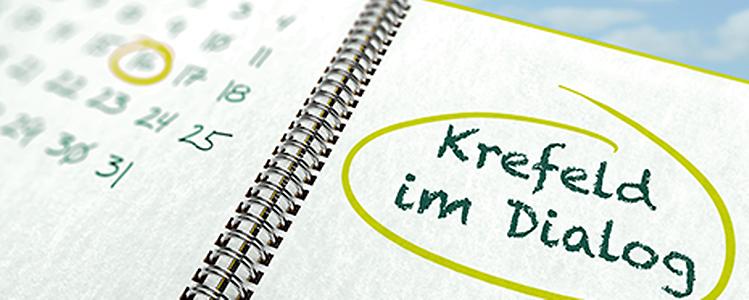 3 4
10 11
16 17 18
22 23 24 25
29 30 31
Krefeld
im Dialog